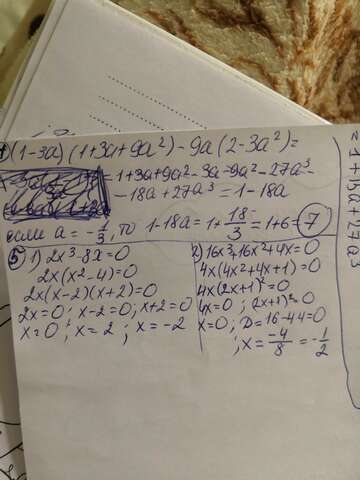 4) (1-3a) (1+3a+9a²) - 9a (2-3a²) =
1+3a+9a²-3a-9a²-27a³-
-18a+27a³ = 1-18a
если a = -1/3, то 1-18a = 1+18/3 = 1+6=7
5) 1) 2x³-8x=0
2x(x²-4)=0
2x(x-2)(x+2)=0
2x=0; x-2=0; x+2=0
x=0; x=2; x=-2
2) 16x³+16x²+4x=0
4x(4x²+4x+1)=0
4x(2x+1)²=0
4x=0; (2x+1)²=0
x=0; D=16-4·4=0
; x = -4/8 = -1/2